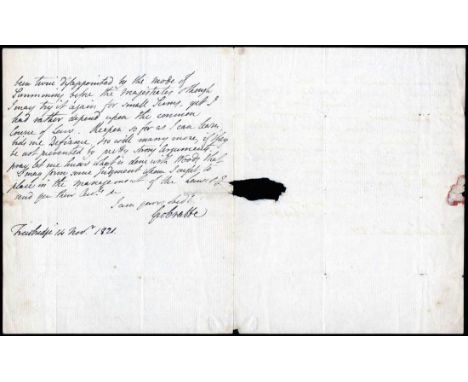 been twice disappointed by the mode of
Summons before the Magistrates & though
I may try it again for small Sums, yet I
had rather depend upon the common
Course of Law. so far as I can learn
bids me Defiance, so will many more, if they
be not to strong Arguments
pray let me hear what is done with Woody that
I may form some Judgment upon I ought to
place in the management of the Laws &
and you their
I am yours, &c
Geo Crabbe
Trowbridge 14 Novr. 1821.